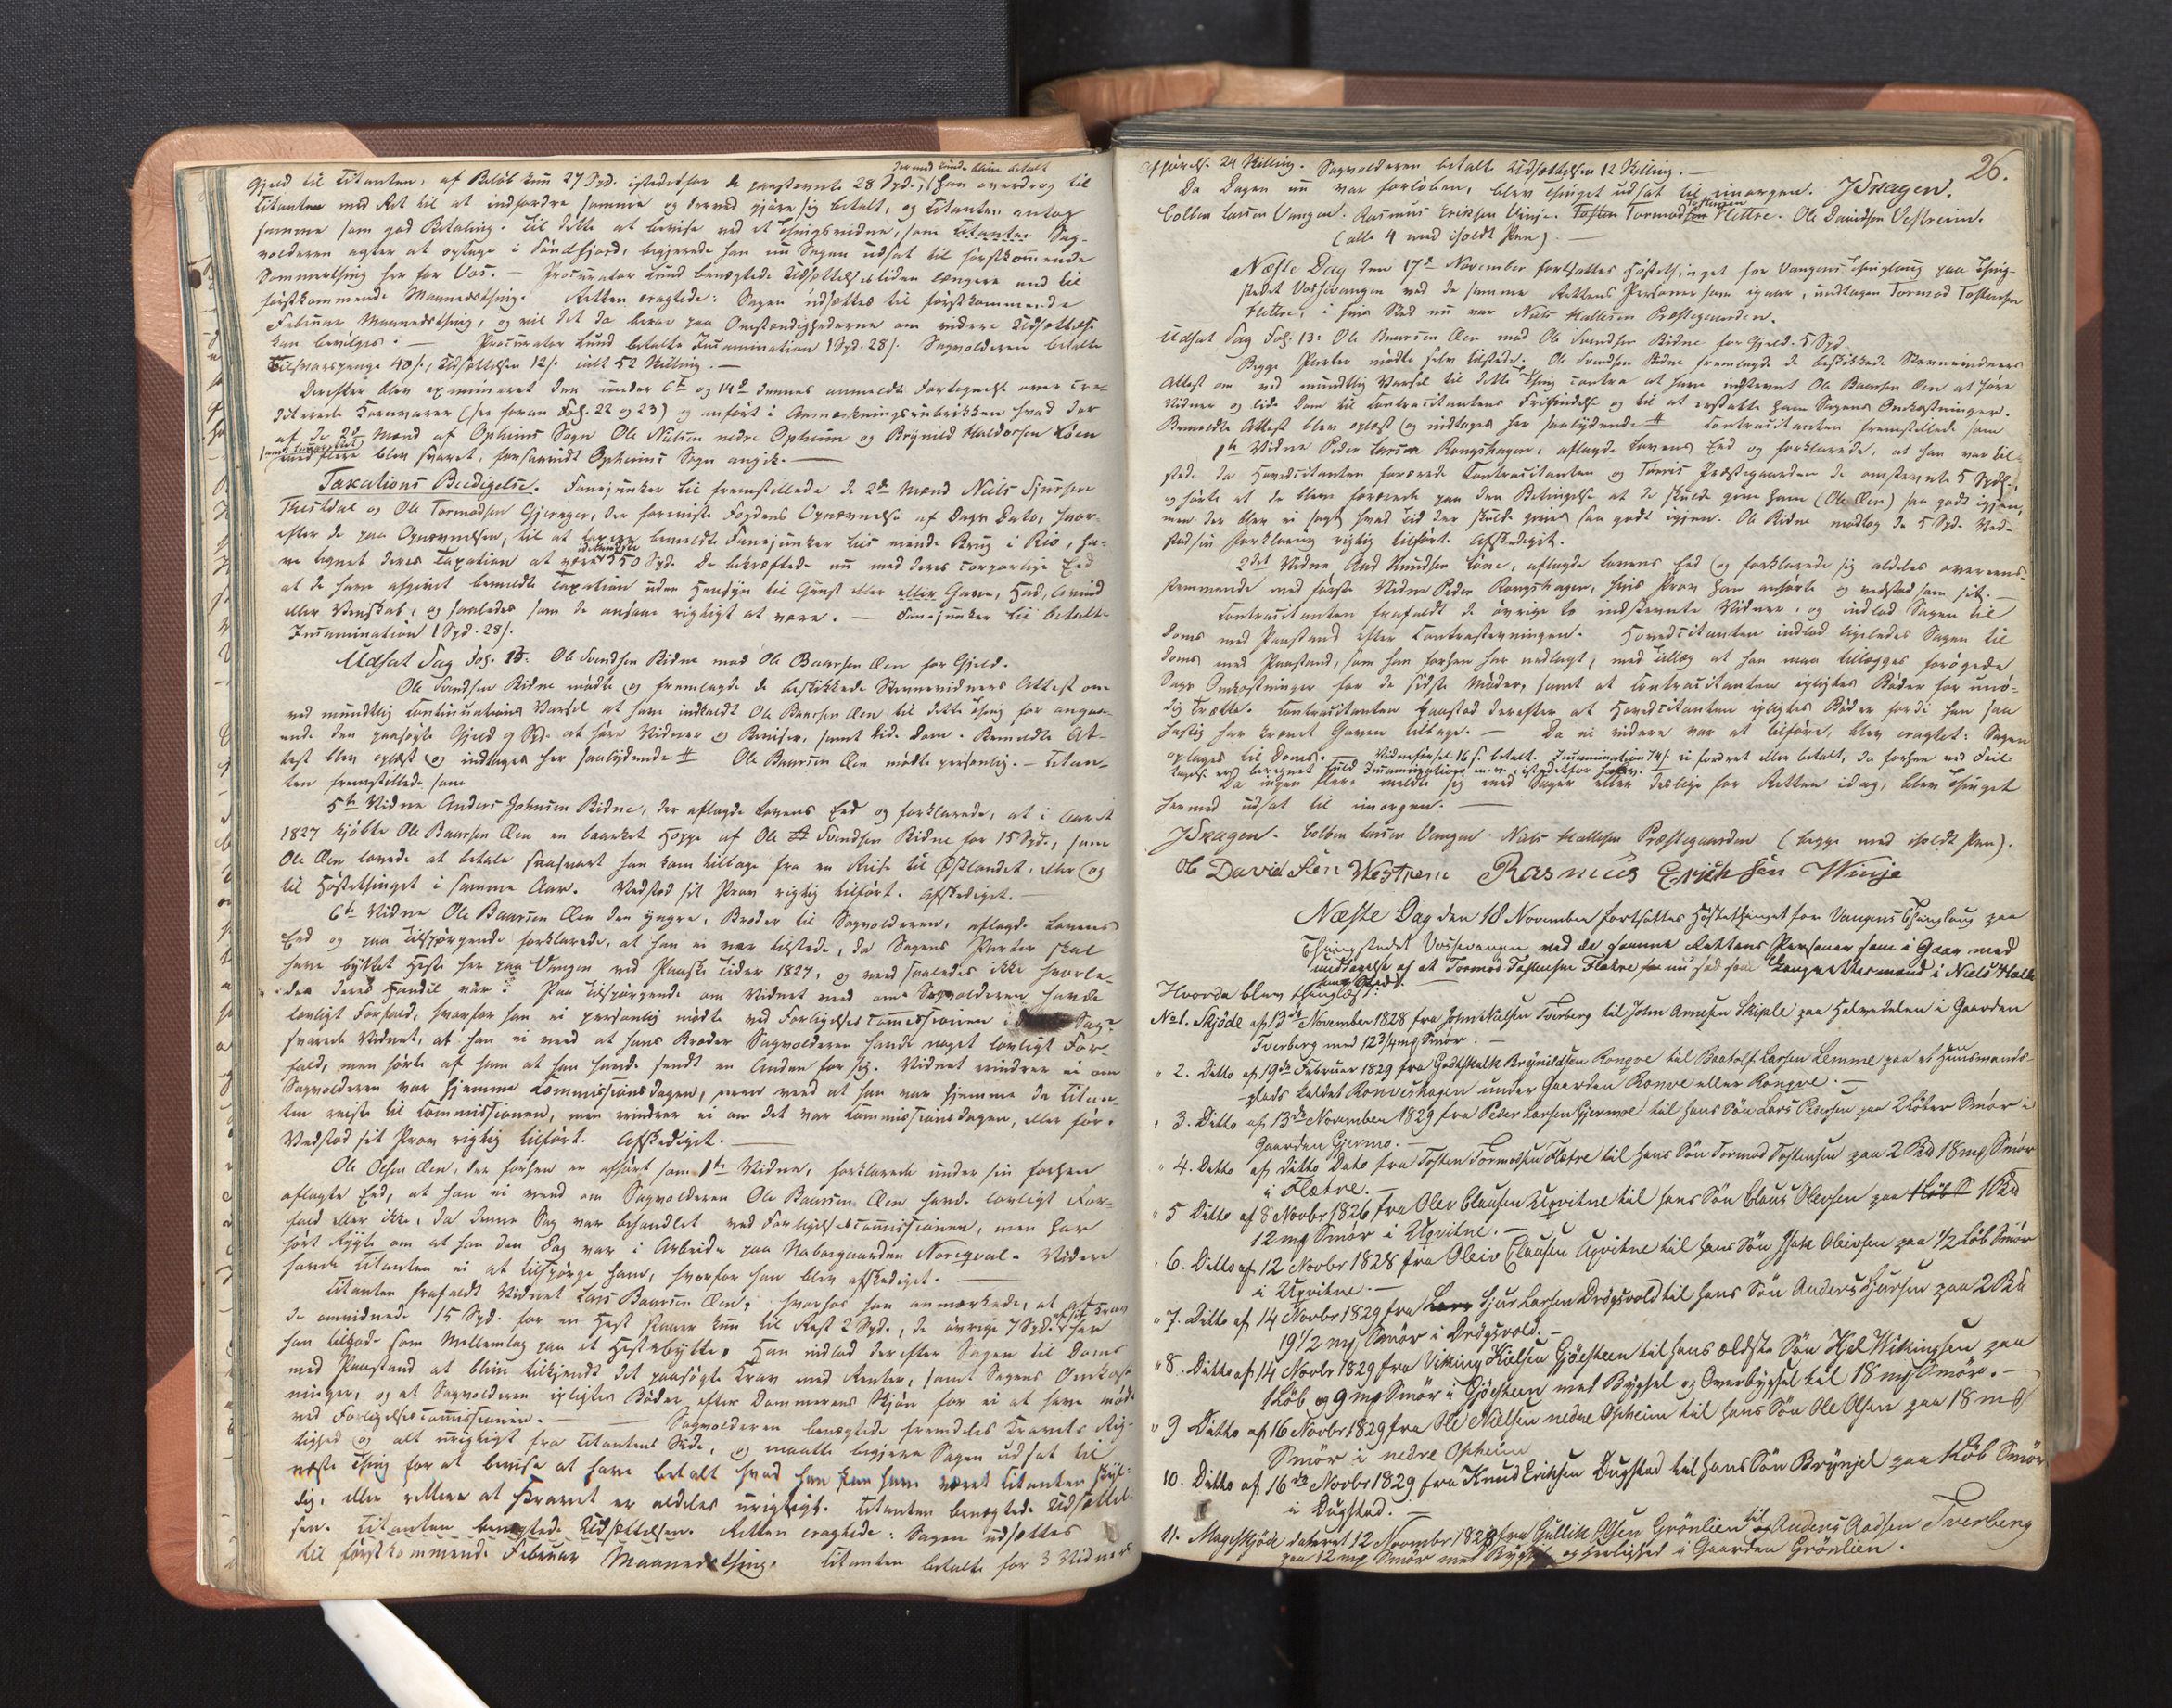 dermed kunde blive betalt
Gjeld til Citanten, af Beløb kun 27 Spd. istedetfor de paastevnte 28 Spd., han overdrog til
Citanten med Ret til at indfordre samme og derved gjøre sig betalt, og Citanten antog
samme som god Betaling. Til dette at bevise ved et Thingsvidne, som Citanten Sag-
volderen agter at optage i Søndfjord, begjerede han nu Sagen udsat til førstkommende
Sommerthing her for Vos. — Procurator Lund benægtede Udsættelsestiden længere end til
førstkommende Maanedsthing. Retten eragtede: Sagen udsættes til førstkommende
Februar Maanedsthing, og vil det da beroe paa Omstændighederne om videre Udsættelse
kan bevilges. — Procurator Lund betalte Incamination 1 Spd. 28/. Sagvolderen betalte
Tilsvarspenge 40/., Udsættelsen 12/. ialt 52 Skilling. —
Derefter blev examineret den under 6te og 14de dennes anmeldte Fortegnelse over cre-
diterede Kornvarer (see foran Fol. 22 og 23) og anført i Anmærkningsrubrikken hvad der
af de 2de Mænd af Opheims Sogn Ole Nielsen nedre Opheim og Brynild Haldorsen Løen
med flere blev svaret, forsaavidt Opheims Sogn angik. —
Taxations Beedigelse. Fanejunker Lii fremstillede de 2de Mænd Niels Sjursen
Thistdal og Ole Tormodsen Gjerager, der foreviste Fogdens Opnævnelse af Dags Dato, hvor-
efter de paa Opnævnelsen, til at taxere bemeldte Fanejunker Liis eiende Brug i Rio, ha-
ve tegnet deres Taxation at være 350 Spd. De bekræftede nu med deres corporlige Eed
at de have afgivet bemeldte Taxation uden Hensyn til Gunst eller Gave, Had, Avind
eller Venskab, og saaledes som de ansaae rigtigt at være. — Fanejunker Lii betalte
Incamination 1 Spd. 28/.
Udsat Sag Fol. 13. Ole Svendsen Ridne mod Ole Baarsen Øen for Gjeld.
Ole Svendsen Ridne mødte og fremlagde de beskikkede Stevnevidners Attest om
ved mundtlig Continuations Varsel at have indkaldt Ole Baarsen Øen til dette Thing for angaa-
ende den paasøgte Gjeld 9 Spd. at høre Vidner og Beviser, samt lide Dom. Bemeldte At-
test blev oplæst og indtages her saalydende # Ole Baarsen Øen mødte personlig. — Citan-
ten fremstillede som
5te Vidne Anders Johnsen Ridne, der aflagde Lovens Eed og forklarede, at i Aaret
1827 kjøbte Ole Baarsen Øen en baarket Hoppe af Ole Svendsen Ridne for 15 Spd., som
Ole Øen lovede at betale saasnart han kom tilbage fra en Reise til Østlandet, eller og
til Høstethinget i samme Aar. Vedstod sit Prov rigtig tilført. Afskediget. —
6te Vidne Ole Baarsen Øen den yngre, Broder til Sagvolderen, aflagde Lovens
Eed og paa Tilspørgende forklarede, at han ei var tilstede, da Sagens Parter skal
have byttet Heste her paa Vangen ved Paaske Tider 1827, og veed saaledes ikke hvorle-
des deres Handel var. Paa Tilspørgende om Vidnet veed om Sagvolderen havde
lovligt Forfald, hvorfor han ei personlig mødte ved Forligelsescommissionen i Sag?
svarede Vidnet, at han ei veed at hans Broder Sagvolderen havde noget lovligt For-
fald, men hørte af ham at han havde sendt en Anden for sig. Vidnet erindrer ei om
Sagvolderen var hjemme Commissionsdagen, men veed at han var hjemme da Citan-
ten reiste til Commissionen, men erindrer ei om det var Commissionsdagen, eller før.
Vedstod sit Prov rigtig tilført. Afskediget. —
Ole Olsen Øen, der forhen er afhørt som 1te Vidne, forklarede under sin forhen
aflagte Eed, at han ei veed om Sagvolderen Ole Baarsen Øen havde lovligt For-
fald eller ikke, da denne Sag var behandlet ved Forligelsescommissionen, men har
hørt Rygte om at han den Dag var i Arbeide paa Nabogaarden Norqval. Videre
havde Citanten ei at tilspørge ham, hvorfor han blev afskediget. —
Citanten frafaldt Vidnet Lars Baarsen Øen, hvorhos han anmærkede, at af
de omvidnede 15 Spd. for en Hest staaer kun til Rest 2 Spd., de øvrige 7 Spd. af sit Krav har
han tilgode som Mellemlag paa et Hestebytte. Han indlod derefter Sagen til Doms
med Paastand at blive tilkjendt det paasøgte Krav med Renter, samt Sagens Omkost-
ninger, og at Sagvolderen igligtes Bøder efter Dommerens Skjøn for ei at have mødt
ved Forligelsescommissionen. — Sagvolderen benægtede fremdeles Kravets Rig-
tighed og alt urigtigt fra Citantens Side, og maatte begjere Sagen udsat til
næste Thing for at bevise at have betalt hvad han kan have været Citanten skyl-
dig, eller rettere at Kravet er aldeles urigtigt. Citanten benægtede Udsættel-
sen. Citanten benægtede Udsættelsen. Retten eragtede: Sagen udsættes
til førstkommende Februar Maanedsthing. Citanten betalte for 3 Vidners
26.
Afhørelse 24 Skilling. Sagvolderen betalte Udsættelsen 12 Skilling. —
Da Dagen nu var forløben, blev Thinget udsat til imorgen. JKragen.
Colben Larsen Vangen. Rasmus Eriksen Vinje. Tosten Tormod Tostensen Flettre. Ole Davidsen Vestreim.
(alle 4 med iholdt Pen). —
Næste Dag den 17de November fortsattes Høstethinget for Vangens Thinglaug paa Thing-
stedet Vossevangen ved de samme Rettens Personer som igaar, undtagen Tormod Tostensen
Flettre, i hvis Sted nu var Niels Hallesen Præstegaarden.
Udsat Sag Fol. 13: Ole Baarsen Øen mod Ole Svendsen Ridne for Gjeld 5 Spd.
Begge Parter mødte selv tilstede. Ole Svendsen Ridne fremlagde de beskikkede Stevnevidners
Attest om ved mundtlig Varsel til dette Thing contra at have indstevnt Ole Baarsen Øen at høre
Vidner og lide Dom til Contracitantens Frifindelse og til at erstatte ham Sagens Omkostninger.
Bemeldte Attest blev oplæst og indtages her saalydende # Contracitanten fremstillede som
1te Vidne Peder Larsen Rongshagen, aflagde Lovens Eed og forklarede, at han var til-
stede da Hovedcitanten forærede Contracitanten og Tørris Præstegaarden de omstevnte 5 Spd.,
og hørte at de blev forærede paa den Betingelse at de skulde giøre ham (Ole Øen) saa godt igjen,
men der blev ei sagt hvad Tid der skulde gives saa godt igjen. Ole Ridne modtog de 5 Spd. Ved-
stod sin Forklaring rigtig tilført. Afskediget.
2det Vidne Aad Knudsen Lione, aflagde Lovens Eed og forklarede sig aldeles overeens-
stemmende med første Vidne Peder Rongshagen, hvis Prov han anhørte og vedstod som sit. —
Contracitanten frafaldt de øvrige to indstevnte Vidner, og indlod Sagen til
Doms med Paastand efter Contrastevningen. Hovedcitanten indlod ligeledes Sagen til
Doms med Paastand, som han forhen har nedlagt, med Tillæg at han maa tillægges forøgede
Sags Omkostninger for de sidste Møder, samt at Contracitanten igligtes Bøder for unø-
dig Trætte. Contracitanten paastod derefter at Hovedcitanten igligtes Bøder fordi han saa
hastig har krævet Gaven tilbage. — Da ei videre var at tilføre, blev eragtet: Sagen
optages til Doms. — Vidneførsel 16 s. betalt. Incamination 74/. ei fordret eller betalt, da forhen ved Feil-
tagelse er beregnet fuld Incamination m.v. istedetfor halv.
Da ingen flere meldte sig med Sager eller deslige for Retten idag, blev Thinget
hermed udsat til imorgen. —
JKragen. Colben Larsen Vangen. Niels Hallesen Præstegaarden (begge med iholdt Pen).
Ole David Søn Westrem Rasmus Erichsen Winje
Næste Dag den 18 November fortsattes Høstethinget for Vangens Thinglaug paa
Thingstedet Vossevangen ved de samme Rettens Personer som i Gaar med
undtagelse af at Tormod Tostensen Flatre nu sad som Laugrettesmand i Niels Halle-
sens Sted.
Hvorda blev thinglæst:
No 1. Skjøde af 13de November 1828 fra John Nielsen Tverberg til John Arnesen Skiple paa Halvedelen i Gaarden
Tverberg med 12 3/4 mg Smør. —
" 2. Ditto af 19de Februar 1829 fra Godtskalk Brynildsen Rongve til Baatolf Larsen Lemme paa et Huusmands-
plads kaldet Ronveshagen under Gaarden Ronve eller Rongve. —
" 3. Ditto af 13de November 1829 fra Peder Larsen Gjermoe til hans Søn Lars Pedersen paa 2 Løber Smør i
Gaarden Gjermo. —
" 4. Ditto af ditto Dato fra Tosten Tormodsen Flatre til hans Søn Tormod Tostensen paa 2 Pd 18 mg Smør
i Flatre. —
" 5 Ditto af 8 Novbr 1826 fra Olev Clausen Uqvitne til hans Søn Claus Olevsen paa 1 Pd
12 mg Smør i Uqvitne. —
" 6. Ditto af 12 Novbr 1828 fra Oleiv Clausen Uqvitne til hans Søn Isak Oleivsen paa 1/2 Løb Smør
i Uqvitne. —
" 7. Ditto af 14 Novbr 1829 fra Sjur Larsen Drøgsvold til hans Søn Anders Sjursen paa 2 Pd
19 1/2 mg Smør i Drøgsvold. —
" 8. Ditto af 14 Novbr 1829 fra Viking Kielsen Gjøesteen til hans ældste Søn Kjel Wikingsen paa
1 Løb og 9 mg Smør i Gjøesteen med Bygsel og Overbygsel til 18 mg Smør. —
" 9 Ditto af 16 Novbr 1829 fra Ole Nielsen nedre Opheim til hans Søn Ole Olsen paa 18 mg
Smør i nedre Opheim
10. Ditto af 16de Novbr 1829 fra Knud Eriksen Dugstad til hans Søn Brynjel paa 1 Løb Smør
i Dugstad. —
11. Mageskjøde dateret 12 November 1829 fra Gullik Olsen Grønlien til Anders Aadsen Tverberg
paa 12 mg Smør med Bygsel og Herlighed i Gaarden Grønlien.